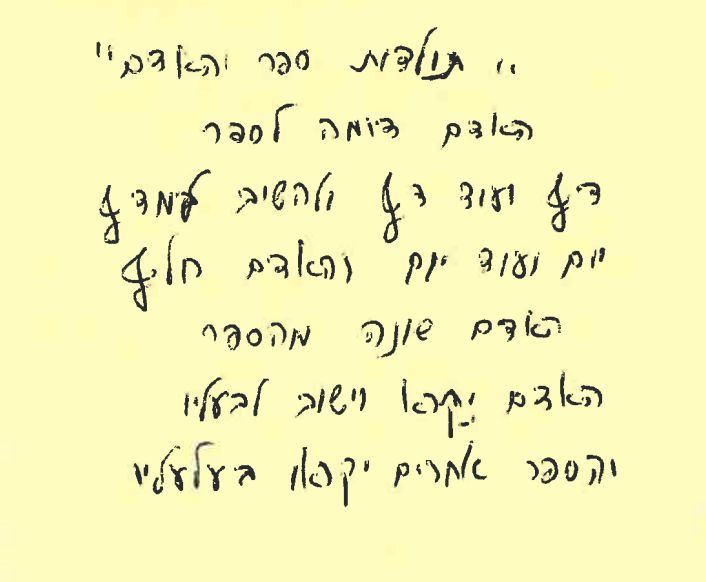 "תולדות ספר והאדם"
האדם דומה לספר
דף ועוד דף ולהשיב למדף
יום ועוד יום והאדם חליף
האדם שונה מהספר
האדם יִקָרא וישוב לבעליו
והספר אחרים יקראו בעלעליו